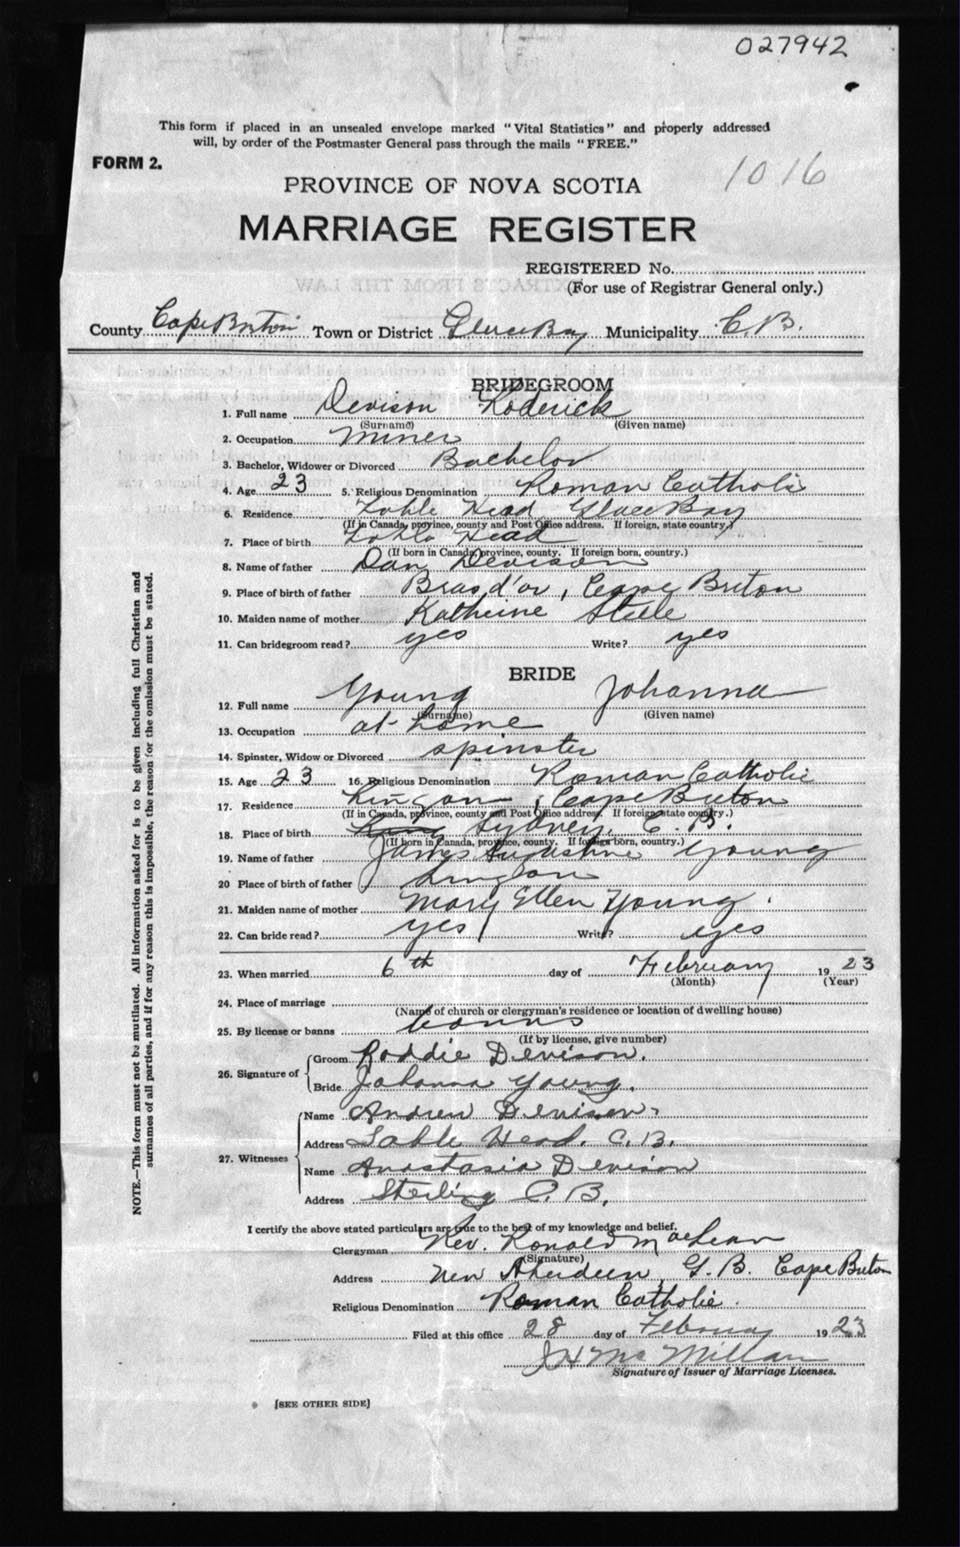 027942
This form if placed in an unsealed envelope marked "Vital Statistics" and properly addressed
will, by order of the Postmaster General pass through the mails "FREE."
FORM 2.
1016
PROVINCE OF NOVA SCOTIA
MARRIAGE REGISTER
REGISTERED No.
(For use of Registrar General only.)
County Cape Breton Town or District Glace Bay Municipality C.B.
BRIDEGROOM
1. Full name Devison Roderick
(Surname) (Given name)
2. Occupation miner
3. Bachelor, Widower or Divorced Bachelor
4. Age 23 5. Religious Denomination Roman Catholic
6. Residence Head Glace Bay
(If in Canada, province, county and Post Office address. If foreign, state country.)
7. Place of birth Head
(If born in Canada, province, county. If foreign born, country.)
8. Name of father Dan Devison
9. Place of birth of father Bras d'or, Cape Breton
10. Maiden name of mother Katherine Steele
11. Can bridegroom read? yes Write? yes
BRIDE
12. Full name Young Johanna
(Surname) (Given name)
13. Occupation at home
14. Spinster, Widow or Divorced spinster
15. Age 23 16. Religious Denomination Roman Catholic
17. Residence Lingan, Cape Breton
(If in Canada, province, county and Post Office address. If foreign, state country.)
18. Place of birth Sydney, C.B.
(If born in Canada, province, county. If foreign born, country.)
19. Name of father James Augustine Young
20 Place of birth of father Lingan
21. Maiden name of mother Mary Ellen Young.
22. Can bride read? yes Write? yes
23. When married 6th day of February 1923
(Month) (Year)
24. Place of marriage
(Name of church or clergyman's residence or location of dwelling house)
25. By license or banns banns
(If by license, give number)
26. Signature of Groom Roddie Devison.
Bride Johanna Young.
27. Witnesses Name Andrew Devison.
Address Sable Head. C.B.
Name Anastasia Devison
Address Sterling C.B.
I certify the above stated particulars are true to the best of my knowledge and belief.
Clergyman Rev. Ronald MacLean
(Signature)
Address New Aberdeen, G.B. Cape Breton
Religious Denomination Roman Catholic.
Filed at this office 28 day of February 1923
J H McMillan
Signature of Issuer of Marriage Licenses.
[SEE OTHER SIDE]
NOTE.—This form must not be mutilated. All information asked for is to be given including full Christian and
surnames of all parties, and if for any reason this is impossible, the reason for the omission must be stated.